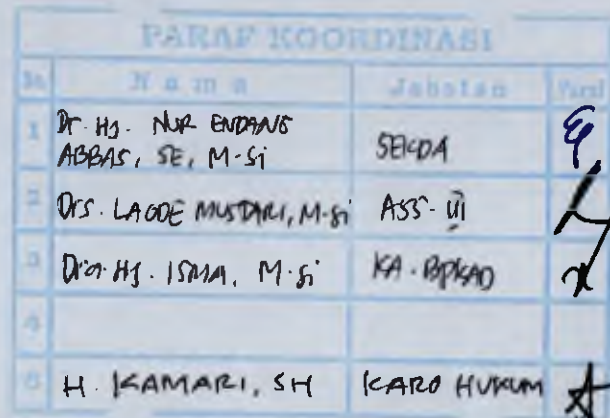 PARAF KOORDINASI
No Nama Jabatan Paraf
1 Dr. Hj. NUR ENDANG
ABBAS, SE, M-Si SEKDA
2 Drs. LAODE MUSTARI, M-Si ASS-III
3 Dra. Hj. ISMA, M.Si KA. BPKAD
4
5 H. KAMARI, SH KARO HUKUM